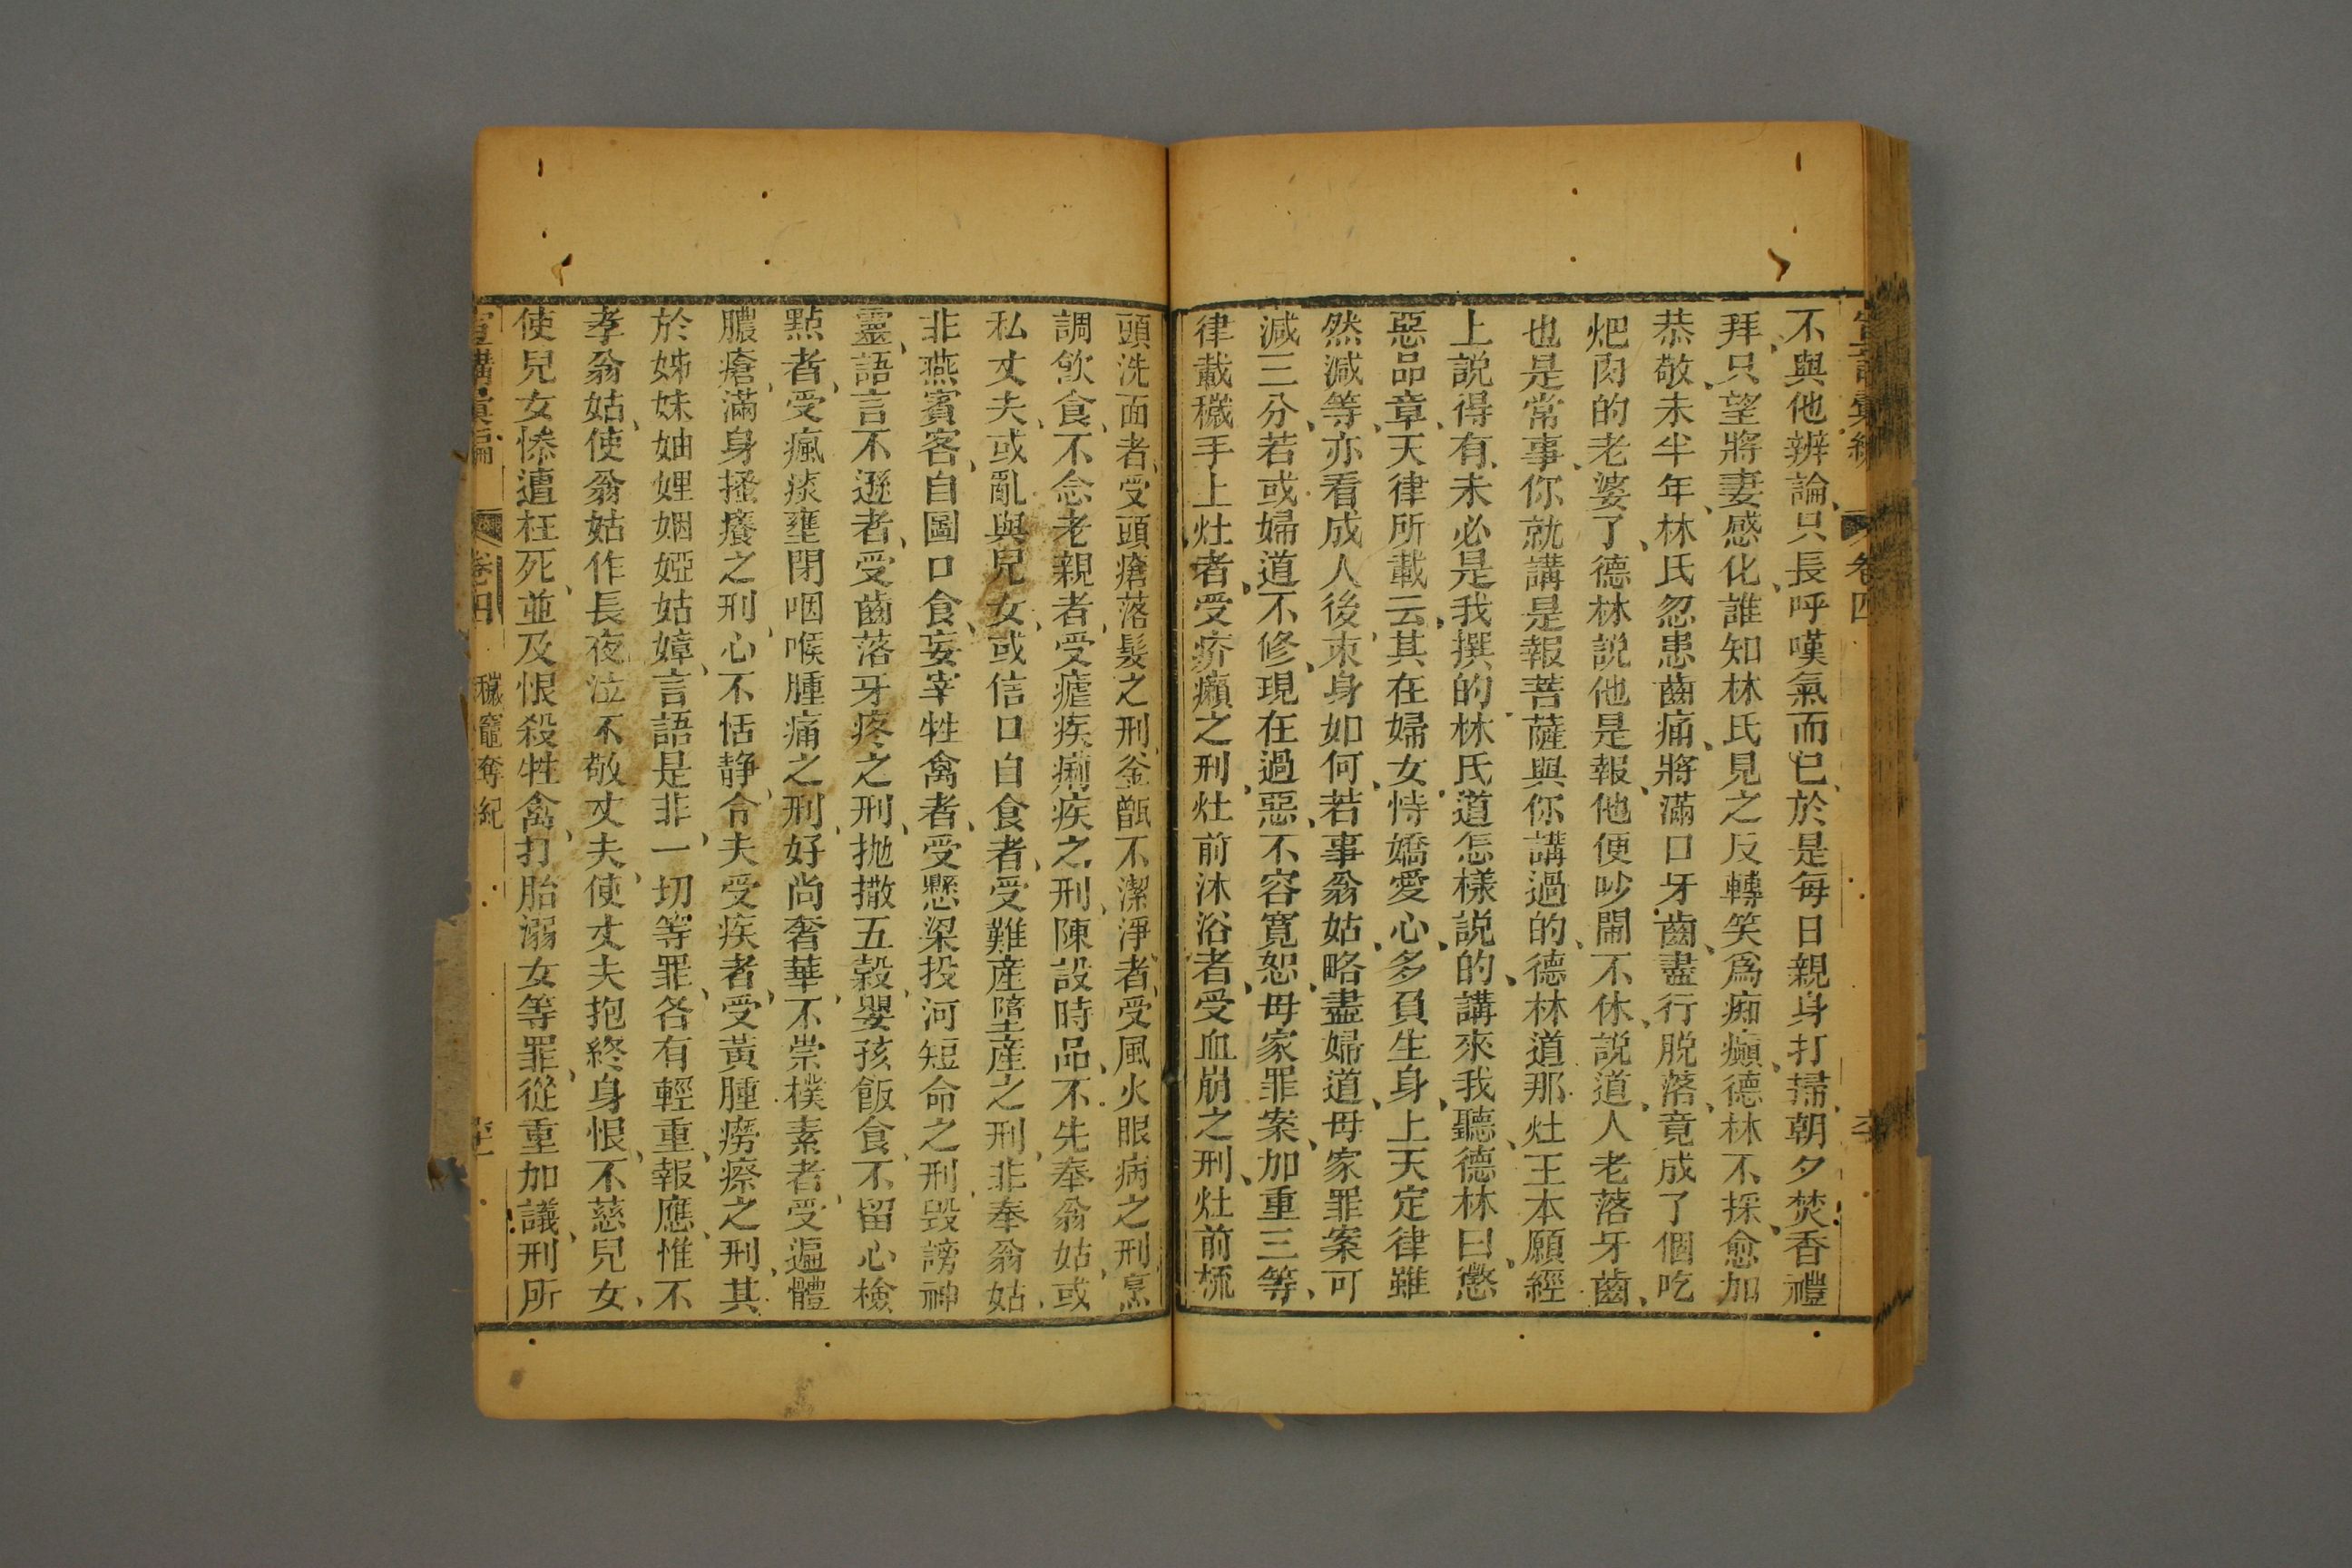 宣講彙編 卷四
不與他辨論只長呼嘆氣而已於是每日親身打掃朝夕焚香禮
拜只望將妻感化誰知林氏見之反轉笑爲痴癲德林不採愈加
恭敬未半年林氏忽患齒痛將滿口牙齒盡行脱落竟成了個吃
𤆵肉的老婆了德林説他是報他便吵鬧不休説道人老落牙齒
也是常事你就講是報菩薩與你講過的德林道那灶王本願經
上説得有未必是我撰的林氏道怎樣説的講來我聽德林曰懲
惡品章天律所載云其在婦女恃嬌愛心多負生身上天定律雖
然減等亦看成人後束身如何若事翁姑略盡婦道毋家罪案可
減三分若或婦道不修現在過惡不容寛恕毋家罪案加重三等
律載穢手上灶者受疥癩之刑灶前沐浴者受血崩之刑灶前梳
頭洗面者受頭瘡落髮之刑釜甑不潔淨者受風火眼病之刑烹
調飲食不念老親者受瘧疾痢疾之刑陳設時品不先奉翁姑或
私丈夫或亂與兒女或信口自食者受難産墮産之刑非奉翁姑
非燕賓客自圖口食妄宰牲禽者受懸梁投河短命之刑毀謗神
靈語言不遜者受齒落牙疼之刑抛撒五穀嬰孩飯食不留心檢
點者受瘋痰壅閉咽喉腫痛之刑好尚奢華不崇樸素者受遍體
膿瘡滿身搔癢之刑心不恬静令夫受疾者受黃腫癆瘵之刑其
於姊妹妯娌姻婭姑嫜言語是非一切等罪各有輕重報應惟不
孝翁姑使翁姑作長夜泣不敬丈夫使丈夫抱終身恨不慈兒女
使兒女慘遭枉死並及恨殺牲禽打胎溺女等罪從重加議刑所
宣講彙編 卷四 穢竈奪紀